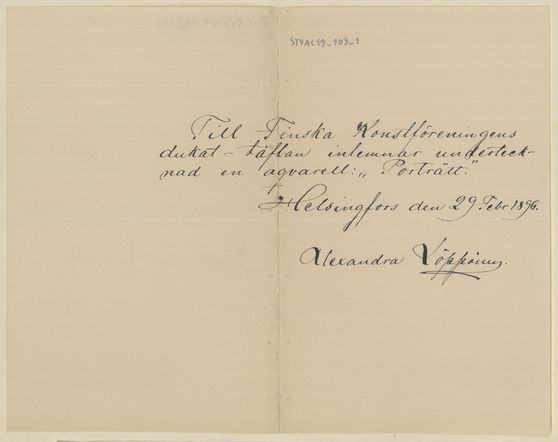 STYAC19_103_1
Till Finska Konstföreningens
dukat-täflan inlemnar underteck-
nad en aqvarell: „Porträtt."
Helsingfors den 29 Febr 1896.
Alexandra